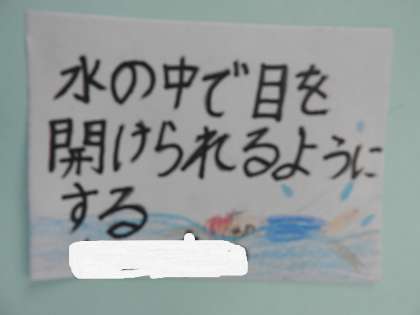 水の中で目を
開けられるように
する